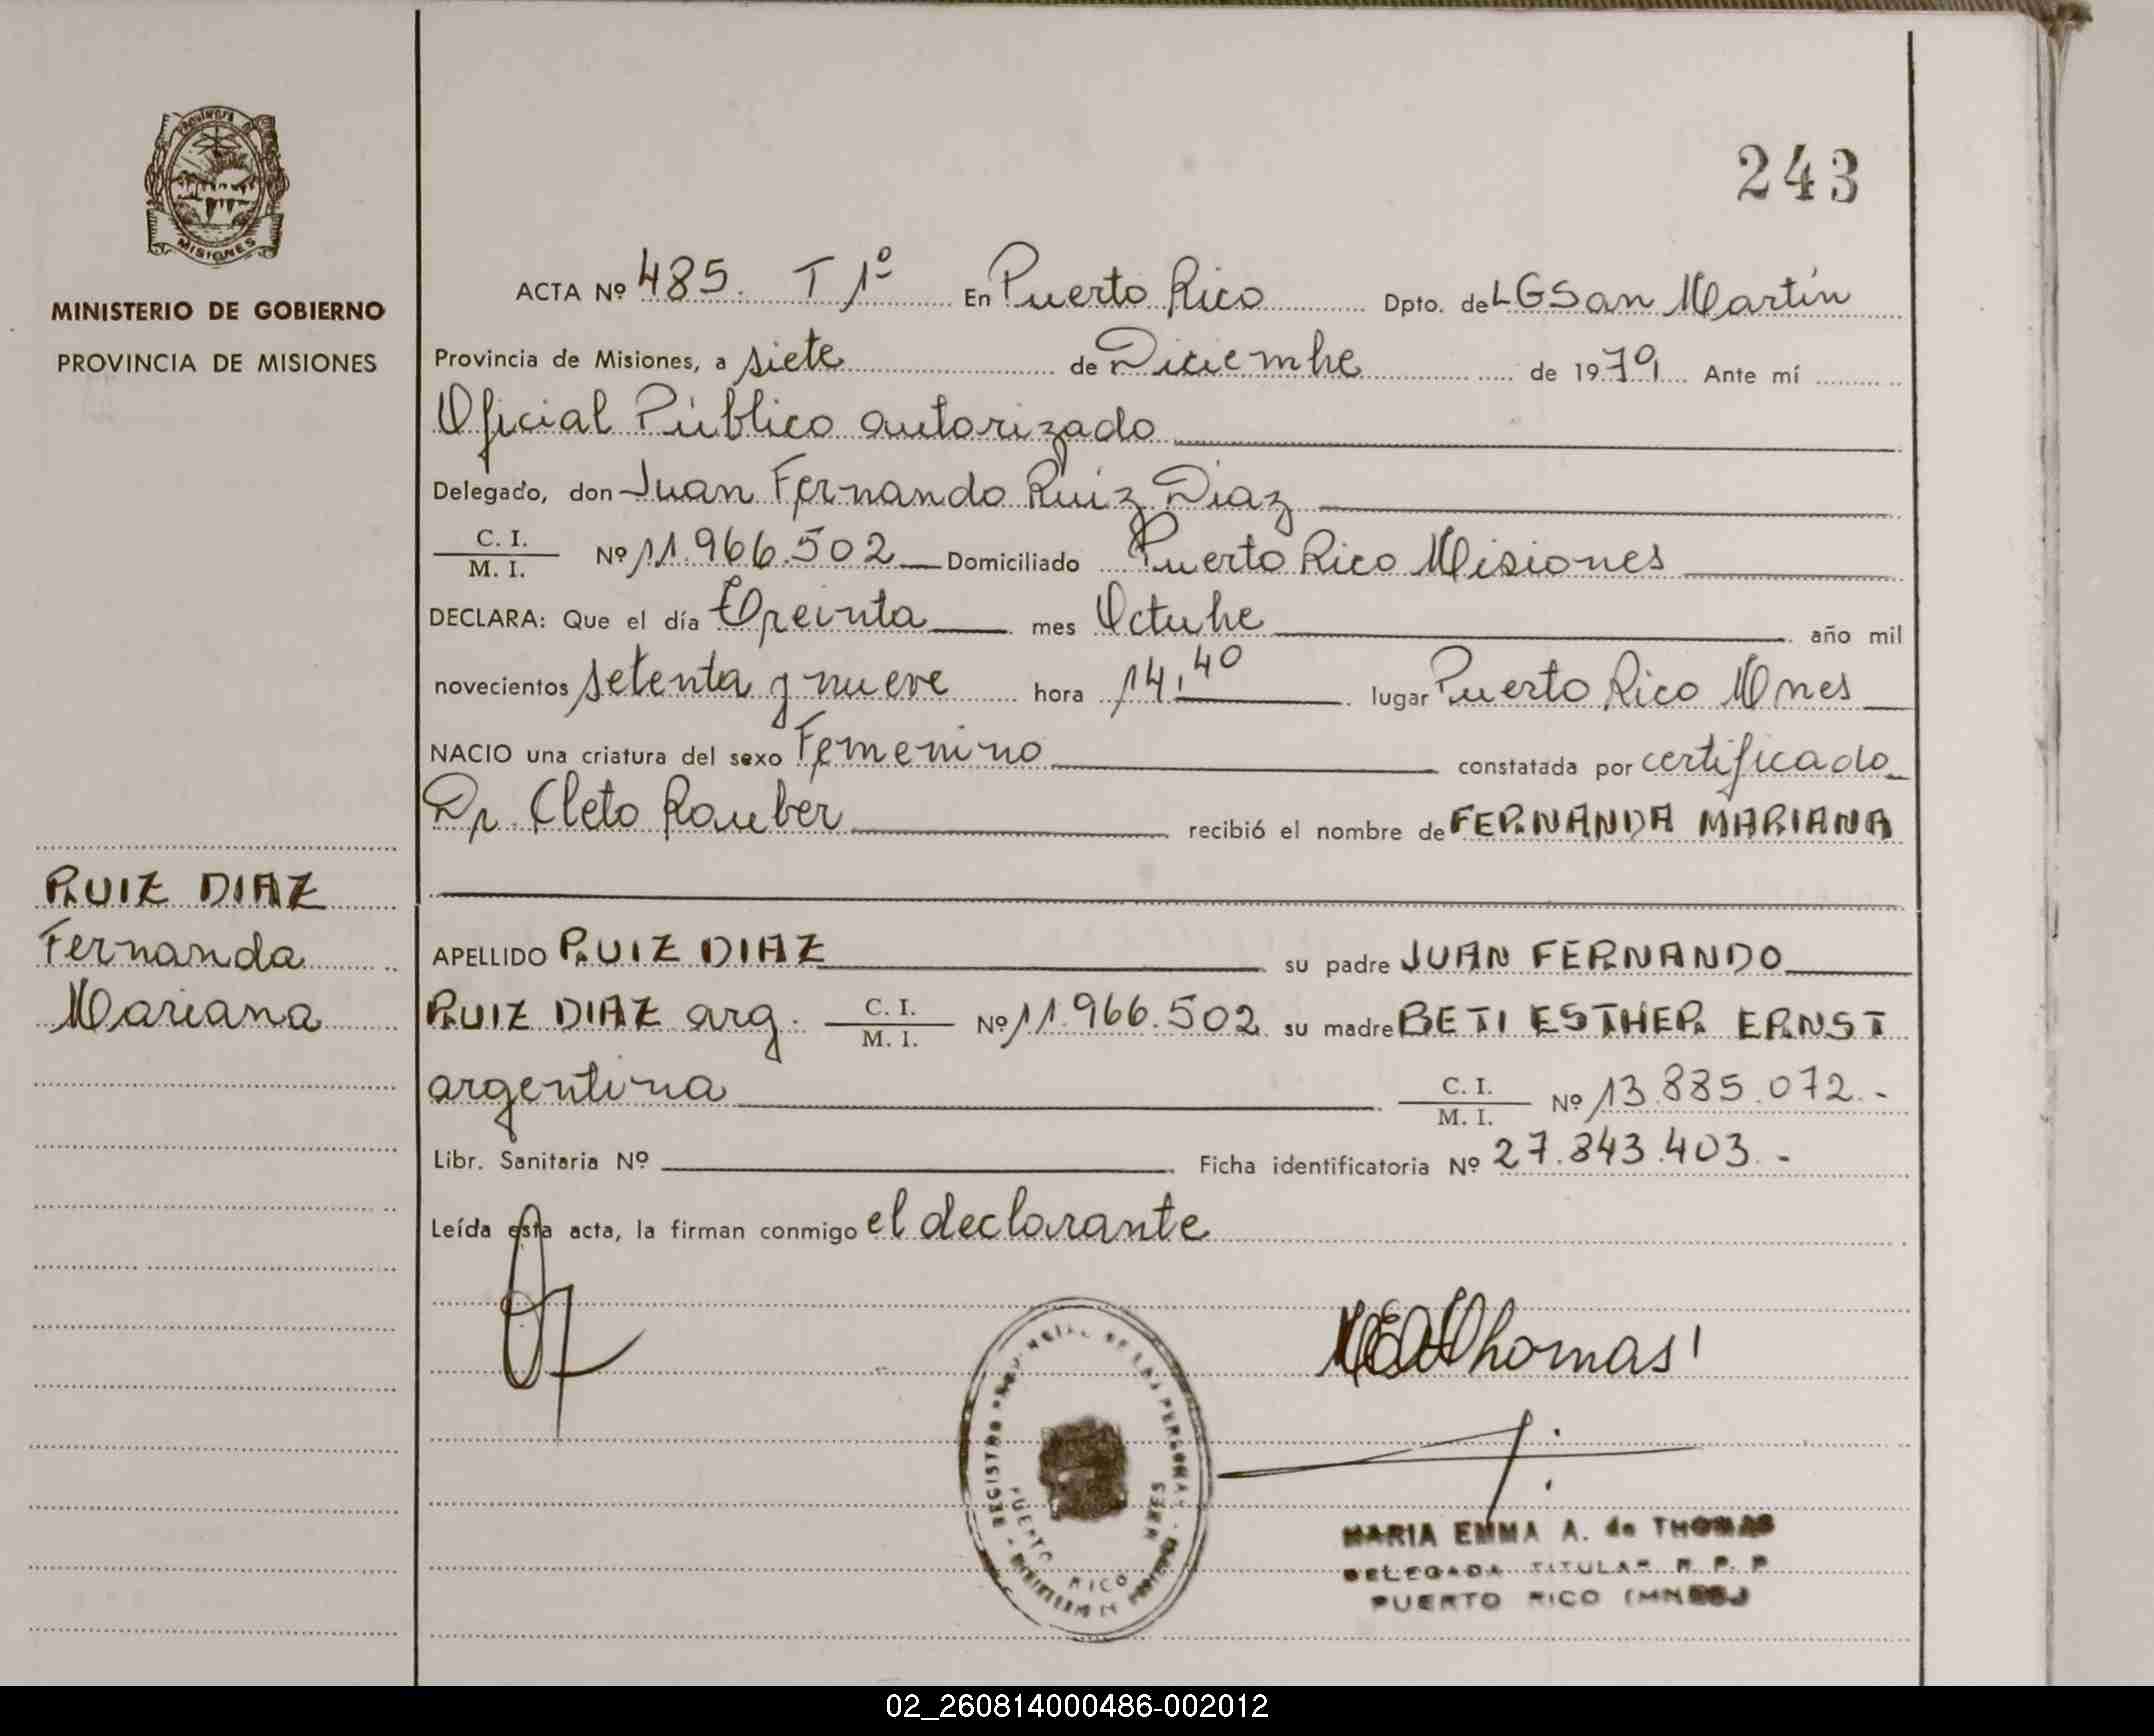 243
MISIONES
MINISTERIO DE GOBIERNO
PROVINCIA DE MISIONES
ACTA Nº 485. T 1º En Puerto Rico Dpto. de LGSan Martín
Provincia de Misiones, a siete de Diciembre de 1979 Ante mí
Oficial Público autorizado
Delegado, don Juan Fernando Ruiz Diaz
C. I. / M. I. Nº 11.966.502 Domiciliado Puerto Rico Misiones
DECLARA: Que el día treinta mes Octubre año mil
novecientos setenta y nueve hora 14,40 lugar Puerto Rico Mnes
NACIO una criatura del sexo Femenino constatada por certificado
Dr. Cleto Rauber recibió el nombre de FERNANDA MARIANA
RUIZ DIAZ
Fernanda
Mariana
APELLIDO RUIZ DIAZ su padre JUAN FERNANDO
RUIZ DIAZ arg. C. I. / M. I. Nº 11.966.502 su madre BETI ESTHER ERNST
argentina C. I. / M. I. Nº 13.885.072.-
Libr. Sanitaria Nº Ficha identificatoria Nº 27.843.403.-
Leída esta acta, la firman conmigo el declarante
Thomas
REGISTRO PROVINCIAL DE LAS PERSONAS
PUERTO RICO MNES
MARIA EMMA A. de THOMAS
DELEGADA TITULAR R. P. P
PUERTO RICO (MNES)
02_260814000486-002012